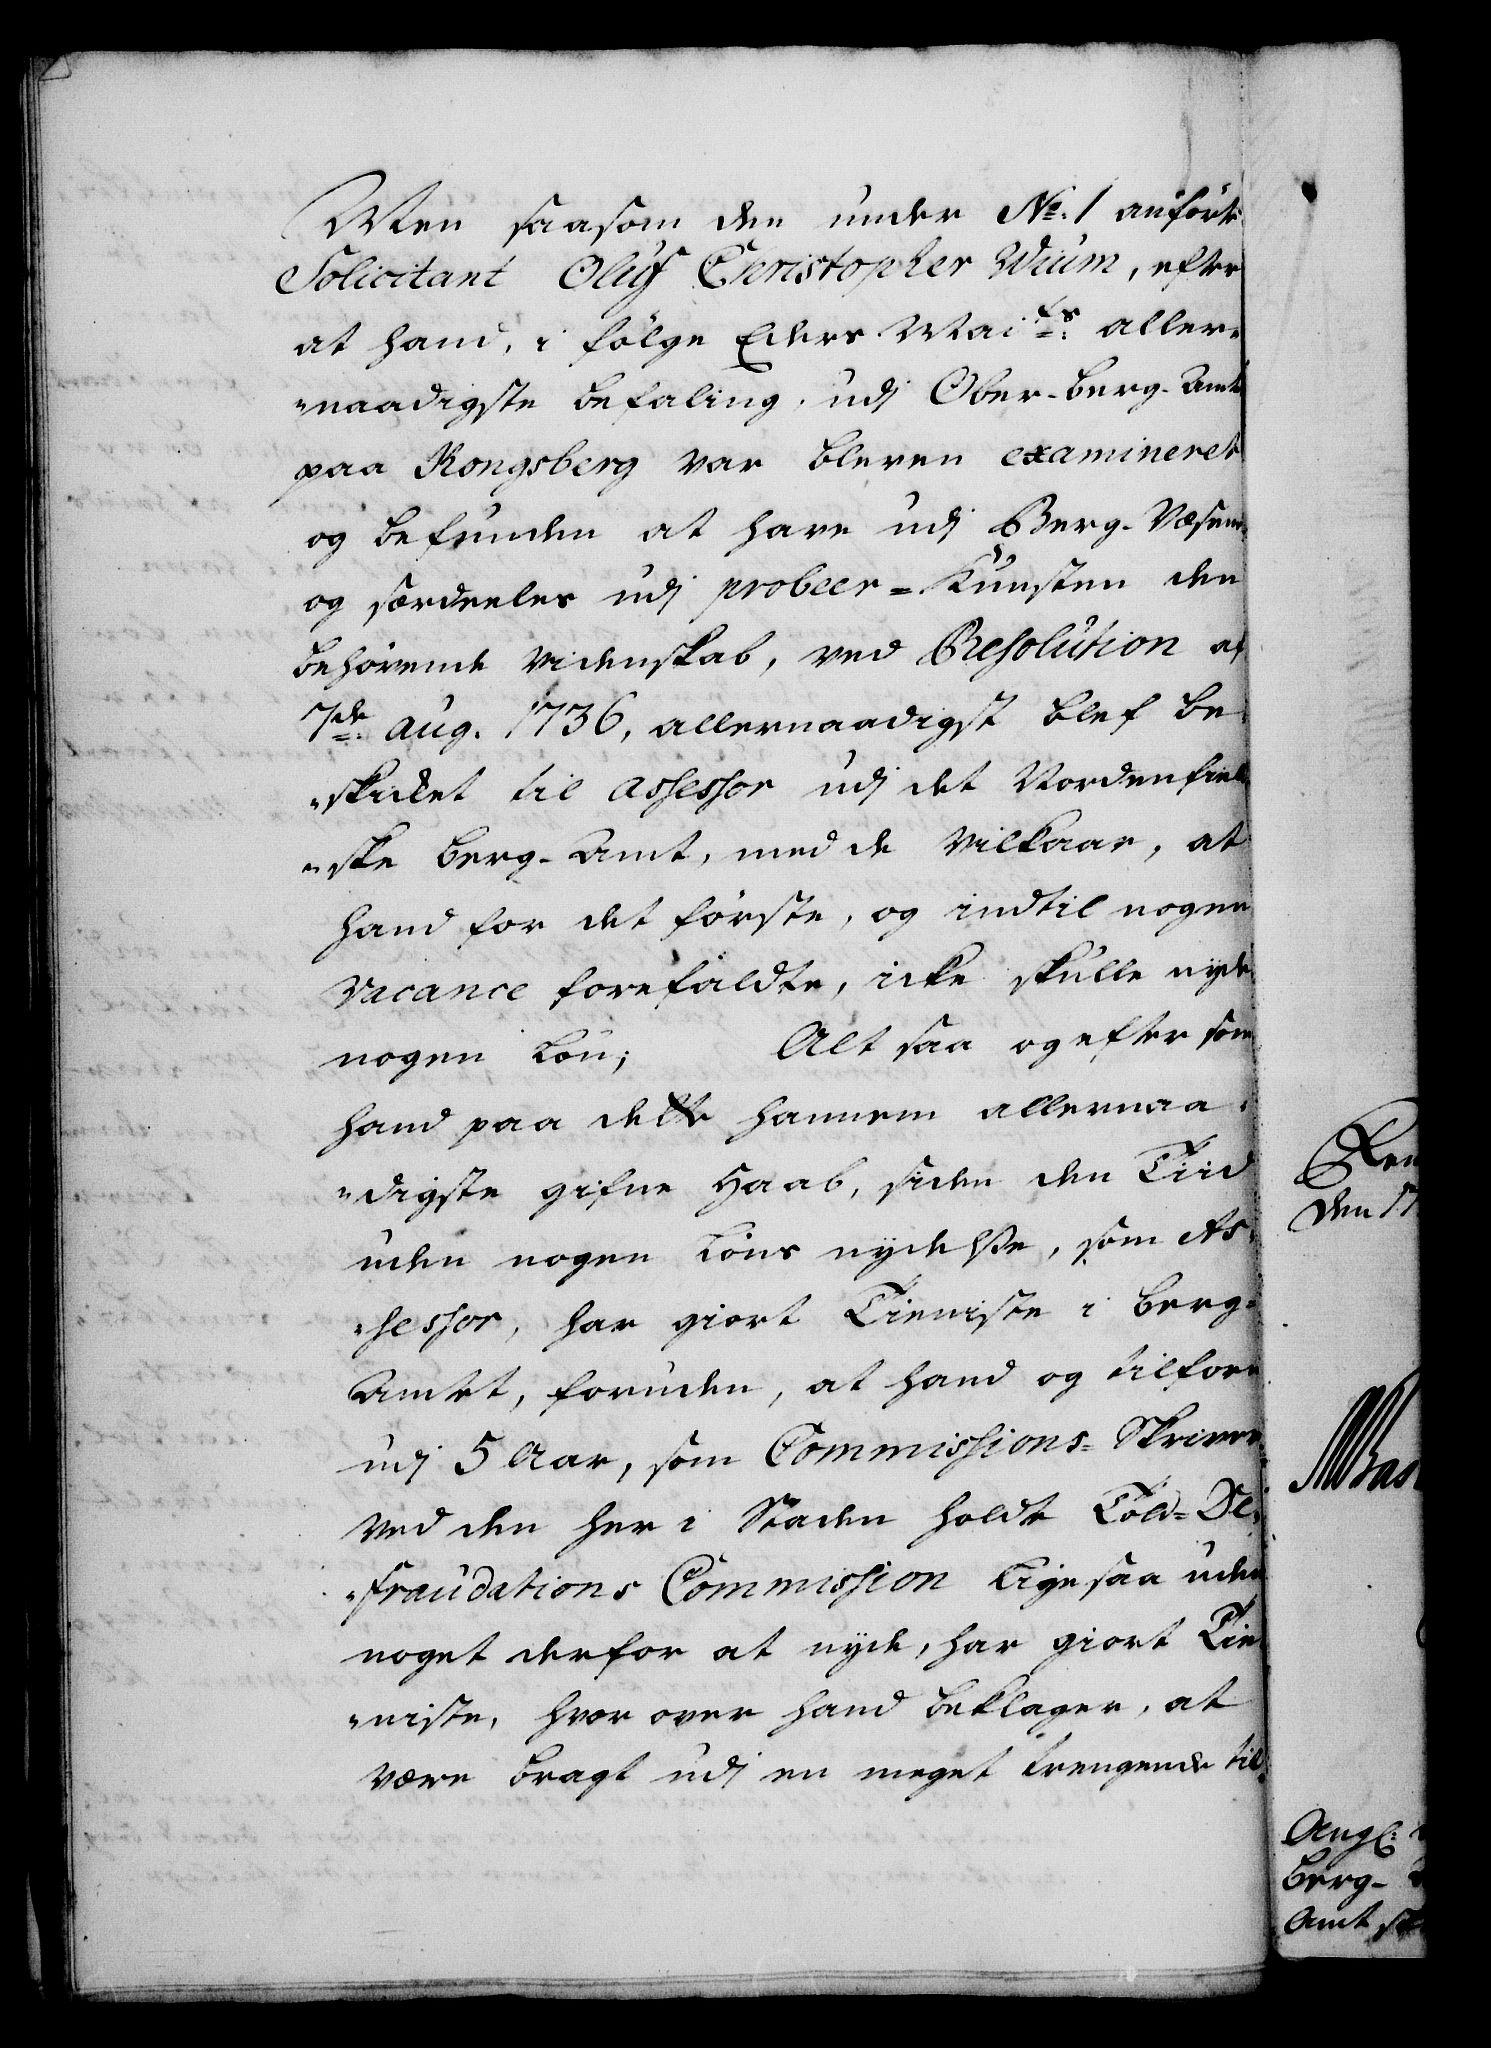 Men saasom den under No. 1 anförte
Solicitant Oluf Christopher Wium, efter
at hand, i fölge Eders Maits aller-
"naadigste befaling, udj Ober-Berg-Amtet
paa Kongsberg var bleven examineret
og befunden at have udj Berg-Væsenet
og særdeeles udj probeer-Kunsten den
behörende videnskab, ved Resolution af
7de aug. 1736, allernaadigst blef be-
"skicket til Assessor udj det Nordenfield
"ske Berg-Amt, med de vilkaar, at
hand for det förste, og indtil nogen
vacance forefaldte, icke skulle nyde
nogen Lön; Alt saa og efter som
hand paa dette hannem allernaa-
"digste gifne Haab, siden den Tiid
uden nogen Löns nydelße, som As-
"sessor, har giort Tieniste i Berg-
Amtet, foruden, at hand og tilforn
udj 5 Aar, som Commissions-Skriver
ved den her i Staden holdte Told-De-
"fraudations Commission ligesaa uden
noget derfor at nyde, har giort Tie-
"niste, hvor over hand beklager, at
være bragt udj en meget trengende til-
den 17
Berg-
Amt